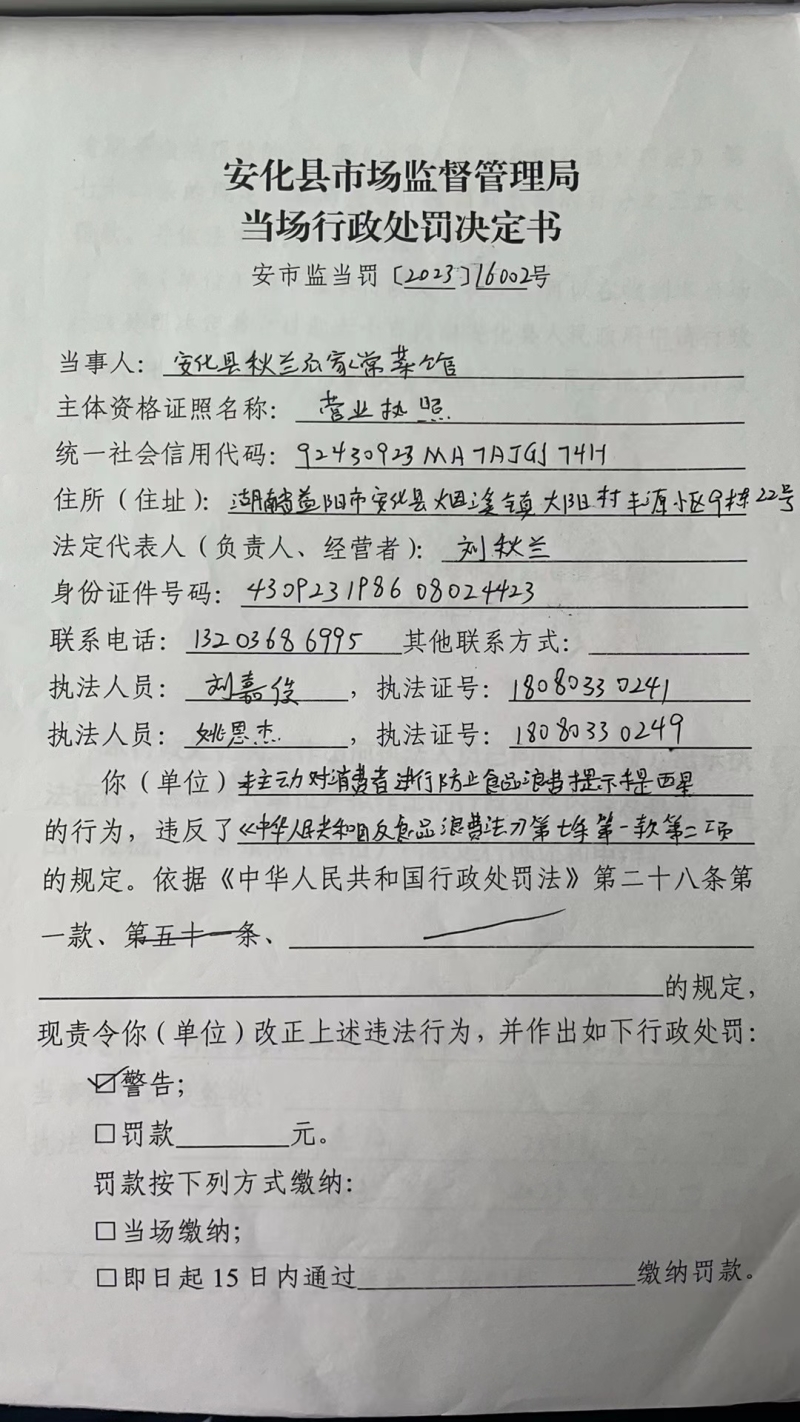 安化县市场监督管理局
当场行政处罚决定书
安市监当罚〔2023〕16002号
当事人：安化县秋兰石家常菜馆
主体资格证照名称：营业执照
统一社会信用代码：92430923MA7AJGJ74H
住所（住址）：湖南省益阳市安化县烟溪镇大阳村丰源小区9栋22号
法定代表人（负责人、经营者）：刘秋兰
身份证件号码：430923198608024423
联系电话：13203686995 其他联系方式：
执法人员：刘嘉俊，执法证号：18080330241
执法人员：姚思杰，执法证号：18080330249
你（单位）未主动对消费者进行防止食品浪费提示提醒
的行为，违反了《中华人民共和国反食品浪费法》第七条第一款第二项
的规定。依据《中华人民共和国行政处罚法》第二十八条第
一款、第五十一条、
的规定，
现责令你（单位）改正上述违法行为，并作出如下行政处罚：
☑警告；
□罚款 元。
罚款按下列方式缴纳：
□当场缴纳；
□即日起15日内通过 缴纳罚款。